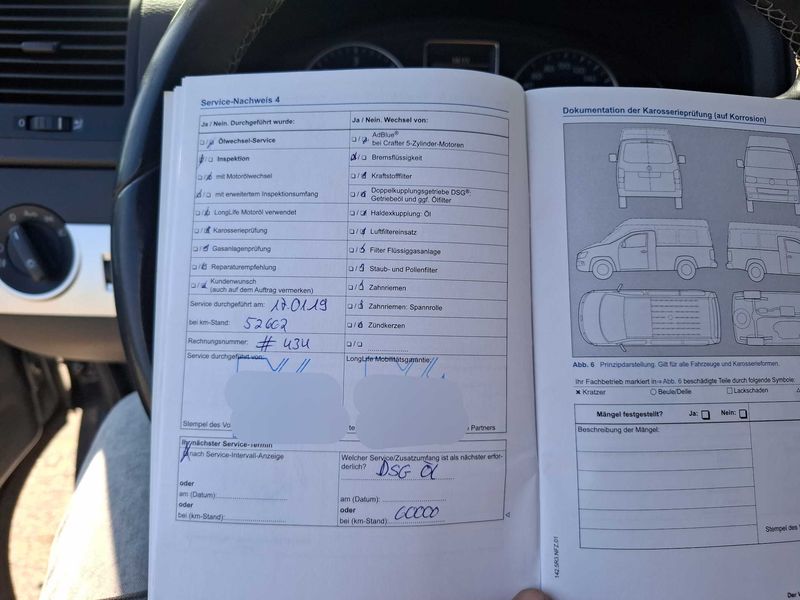 Service-Nachweis 4
Ja / Nein. Durchgeführt wurde:
Ölwechsel-Service
Inspektion
mit Motorölwechsel
mit erweitertem Inspektionsumfang
LongLife Motoröl verwendet
Karosserieprüfung
Gasanlagenprüfung
Reparaturempfehlung
Kundenwunsch
(auch auf dem Auftrag vermerken)
Service durchgeführt am: 17.01.19
bei km-Stand: 52602
Rechnungsnummer: # 434
Service durchgeführt von:
Stempel des Vo
Ja / Nein. Wechsel von:
AdBlue®
bei Crafter 5-Zylinder-Motoren
Bremsflüssigkeit
Kraftstofffilter
Doppelkupplungsgetriebe DSG®:
Getriebeöl und ggf. Ölfilter
Haldexkupplung: Öl
Luftfiltereinsatz
Filter Flüssiggasanlage
Staub- und Pollenfilter
Zahnriemen
Zahnriemen: Spannrolle
Zündkerzen
LongLife Mobilitätsgarantie:
te
Partners
Ihr nächster Service-Termin
nach Service-Intervall-Anzeige
oder
am (Datum):
oder
bei (km-Stand):
Welcher Service/Zusatzumfang ist als nächster erfor-
derlich? DSG Öl
am (Datum):
oder
bei (km-Stand): 60000
Dokumentation der Karosserieprüfung (auf Korrosion)
Abb. 6 Prinzipdarstellung. Gilt für alle Fahrzeuge und Karosserieformen.
Ihr Fachbetrieb markiert in ⇒ Abb. 6 beschädigte Teile durch folgende Symbole:
× Kratzer ○ Beule/Delle □ Lackschaden
Mängel festgestellt? Ja: Nein:
Beschreibung der Mängel:
Stempel des
142.5R3.NFZ.01